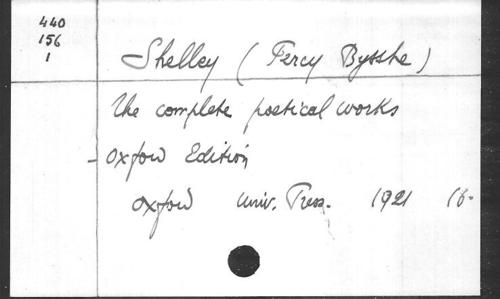 440
156
1
Shelley (Percy Bysshe)
The complete poetical works
- Oxford Edition
Oxford Univ. Press. 1921 16-